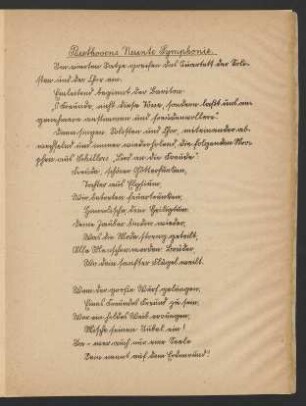 Beethovens Neunte Symphonie.
Im vierten Satze greifen das Quartett der Soli-
sten und der Chor ein.
Einleitend beginnt der Bariton:
"O Freunde, nicht diese Töne, sondern laßt uns an-
genehmere anstimmen und freudenvollere!"
Dann singen Solisten und Chor, miteinander ab-
wechselnd und immer wiederholend, die folgenden Stro-
phen aus Schillers "Lied an die Freude":
Freude, schöner Götterfunken,
Tochter aus Elysium,
Wir betreten feuertrunken,
Himmlische, dein Heiligtum.
Deine Zauber binden wieder,
Was die Mode streng geteilt,
Alle Menschen werden Brüder,
Wo dein sanfter Flügel weilt.
Wem der große Wurf gelungen,
Eines Freundes Freund zu sein,
Wer ein holdes Weib errungen,
Mische seinen Jubel ein!
Ja - wer auch nur eine Seele
Sein nennt auf dem Erdenrund!